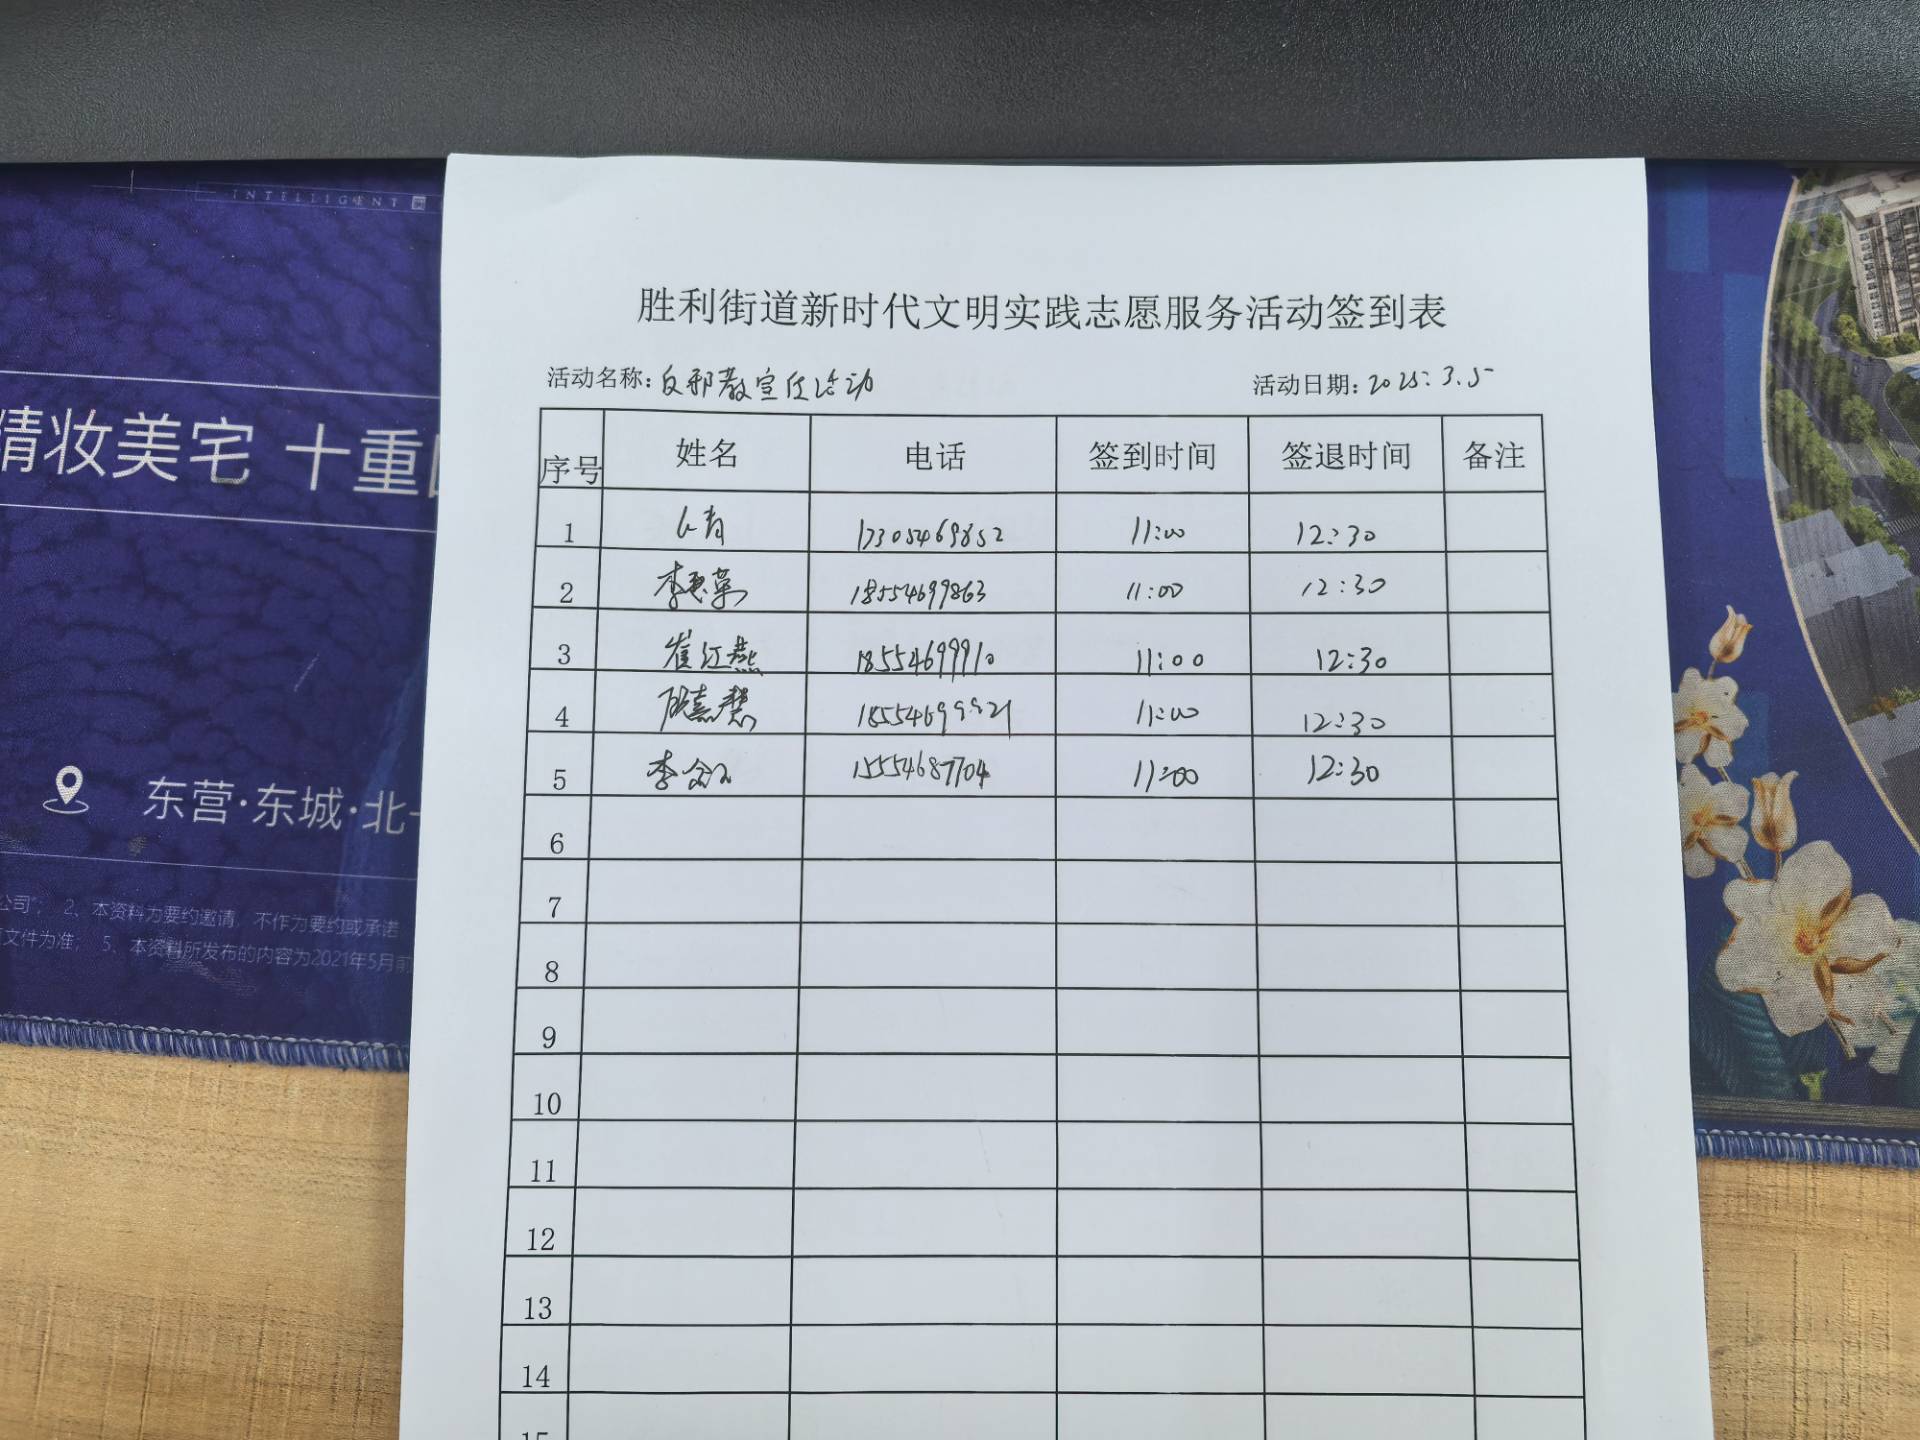 INTELLIGENT
精妆美宅 十重
东营·东城·北
公司"; 2、本资料为要约邀请，不作为要约或承诺
文件为准; 5、本资料所发布的内容为2021年5月前
胜利街道新时代文明实践志愿服务活动签到表
活动名称:反邪教宣传活动 活动日期:2025.3.5
序号 姓名 电话 签到时间 签退时间 备注
1 17305469852 11:00 12:30
2 李慧荣 18554699863 11:00 12:30
3 崔江燕 18554699910 11:00 12:30
4 18554699921 11:00 12:30
5 李 15554687704 11:00 12:30
6
7
8
9
10
11
12
13
14
15